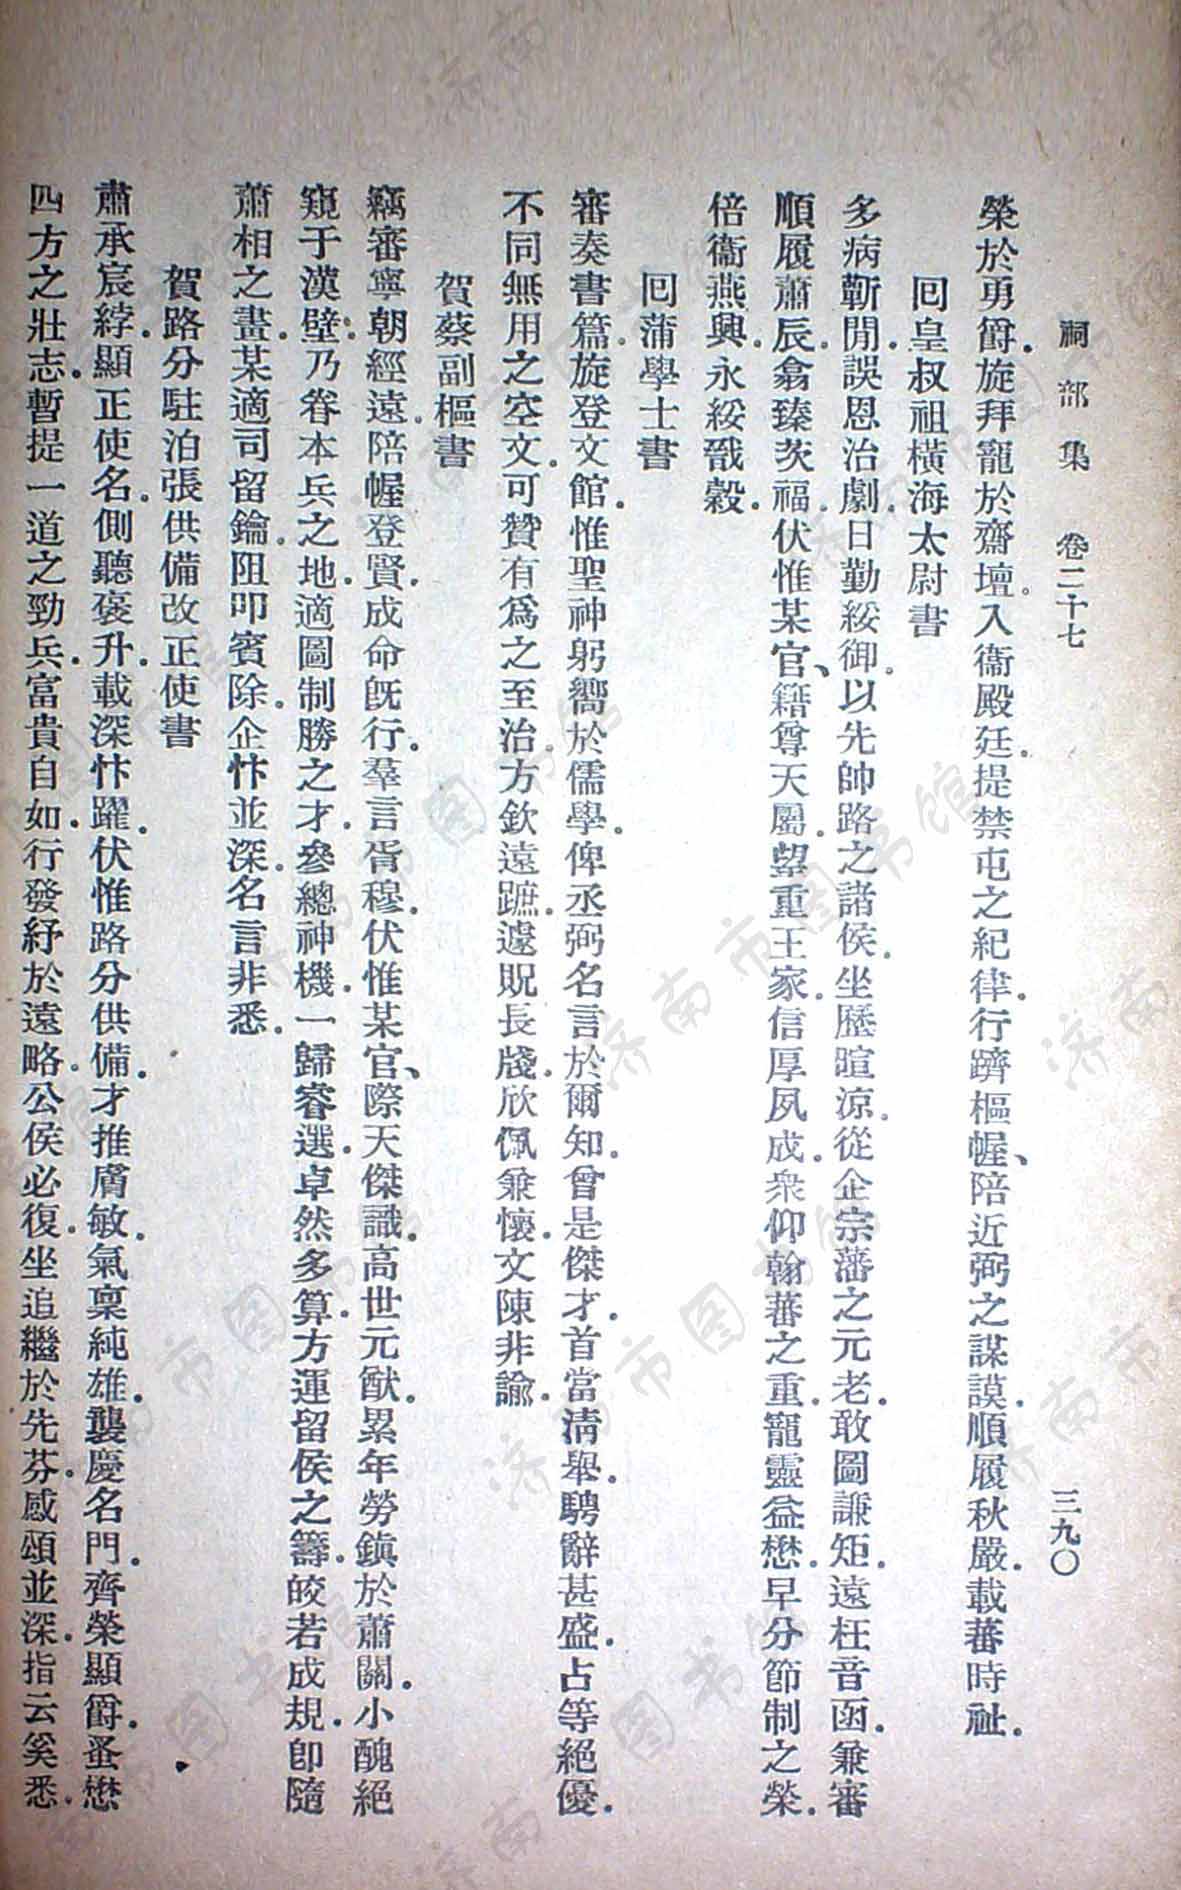 祠部集　卷二十七　三九〇
榮於勇爵。旋拜寵於齋壇。入衞殿廷。提禁屯之紀律。行躋樞幄、陪近弼之謀謨。順履秋嚴。載蕃時祉。
回皇叔祖橫海太尉書
多病蘄閒。誤恩治劇。日勤綏御。以先帥路之諸侯。坐歷暄涼。從企宗藩之元老。敢圖謙矩。遠枉音函。兼審
順履蕭辰。翕臻茨福。伏惟某官、籍尊天屬。望重王家。信厚夙成。衆仰翰蕃之重。寵靈益懋。早分節制之榮。
倍衞燕興。永綏戩穀。
回蒲學士書
審奏書篇。旋登文館。惟聖神躬嚮於儒學。俾丞弼名言於爾知。曾是傑才。首當清舉。騁辭甚盛。占等絕優。
不同無用之空文。可贊有爲之至治。方欽遠蹠。遽貺長牋。欣佩兼懷。文陳非諭。
賀蔡副樞書
竊審寧朝經遠。陪幄登賢。成命旣行。羣言胥穆。伏惟某官、際天傑識。高世元猷。累年勞鎭於蕭關。小醜絕
窺于漢壁。乃眷本兵之地。適圖制勝之才。參總神機。一歸睿選。卓然多算。方運留侯之籌。皎若成規。卽隨
蕭相之畫。某適司留鑰。阻叩賓除。企忭並深。名言非悉。
賀路分駐泊張供備改正使書
肅承宸綍。顯正使名。側聽褒升。載深忭躍。伏惟路分供備。才推膚敏。氣稟純雄。襲慶名門。齊榮顯爵。蚤懋
四方之壯志。暫提一道之勁兵。富貴自如。行發紓於遠略。公侯必復。坐追繼於先芬。感頌並深。指云奚悉。
济南市图书馆